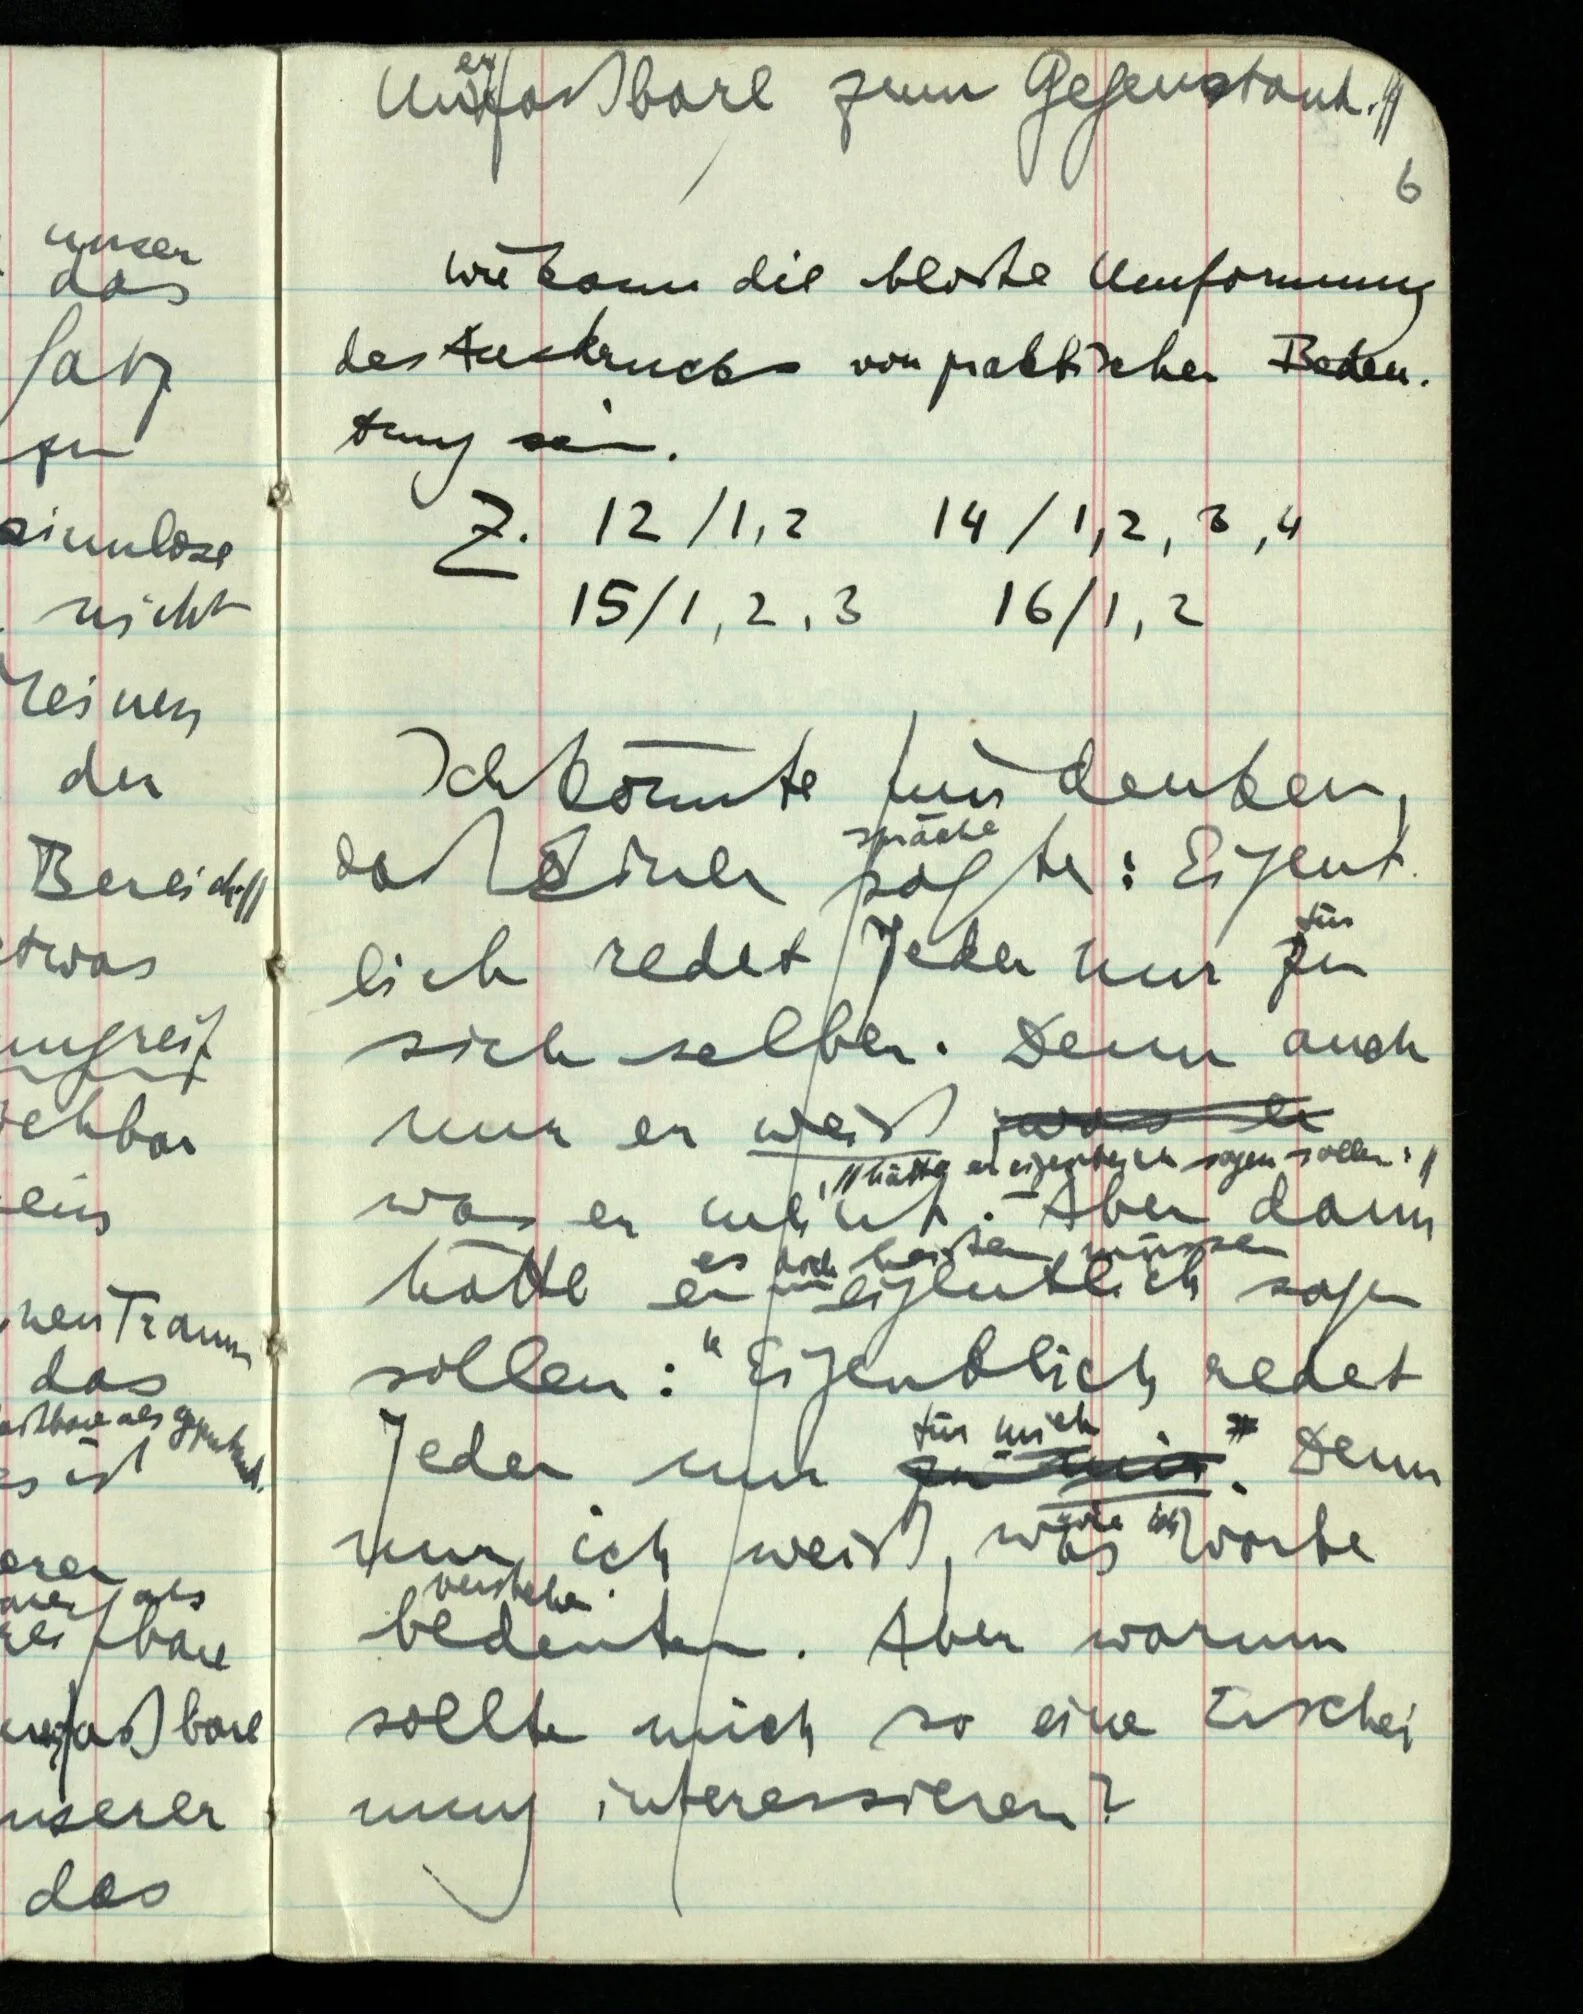 unser
das
Satz
zu
sinnlose
nicht
der
Bereich.//
etwas
ein
Traum
das
es ist
unserer
das
Unerfaßbare zum Gegenstand.//
6
Wie kann die bloße Umformung
des Ausdrucks von praktischer Bedeu-
tung sein.
Z. 12/1,2 14/1,2,3,4
15/1,2,3 16/1,2
Ich könnte mir denken,
spräche
daß Einer sagte: Eigent-
für
lich redet Jeder nur zu
sich selber. Denn auch
nur er weiß was er
, // hätte er eigentlich sagen sollen: //
was er meint. – Aber dann
es doch heißen müssen
hätte er eigentlich sagen
sollen: “Eigentlich redet
für mich
Jeder nur zu mir”. Denn
wie ich
nur ich weiß, was Worte
verstehe.
bedeuten. Aber warum
sollte mich so eine Erschei
nung interessieren?